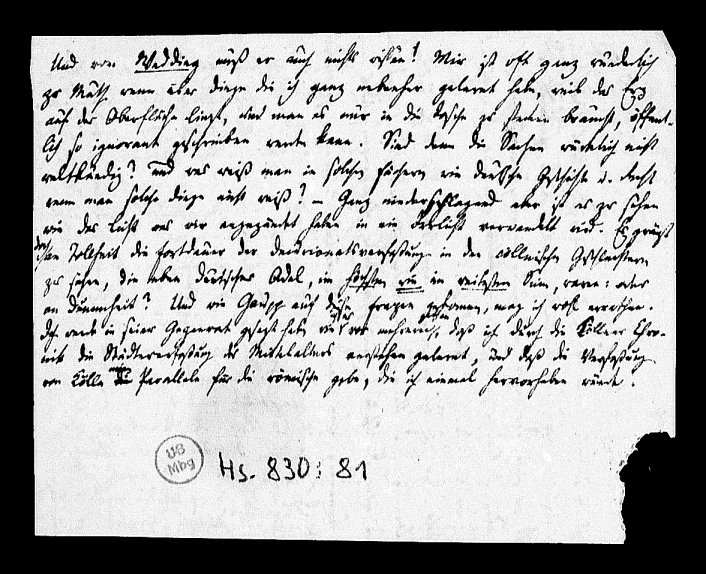 Und von Wedding muß er auch nichts wissen! Mir ist oft ganz wunderlich
zu Muth, wenn über Dinge die ich ganz nebenher gelernt habe, weil das Erz
auf der Oberfläche liegt, und man es nur in die Tasche zu stecken braucht, öffent-
lich so ignorant geschrieben werden kann. Sind denn die Sachen wirklich nicht
weltkundig? und was weiß man in solchen Fächern wie deutsche Geschichte u. Recht
wenn man solche Dinge nicht weiß? – Ganz niederschlagend aber ist es zu sehen
wie das Licht was wir angezündet haben in ein Irrlicht verwandelt wird. Es gränzt
an Tollheit die Fortdauer der Decurionatsverfassung in den cöllnischen Geschlechtern
zu sehen, die eben deutscher Adel, im höchsten wie im weitesten Sinn, waren: oder
an Dummheit? Und wie Gaupp auf diese Fragen gekommen, mag ich wohl errathen.
Ich werde in seiner Gegenwart gesagt haben, wie vor mehreren, daß ich durch die Cöllner Chro-
nik die Städteverfassung des Mittelalters verstehen gelernt, und daß die Verfassung
von Cölln die Parallele für die römische gebe, die ich einmal hervorheben würde.
UB
Mbg
Hs. 830: 81